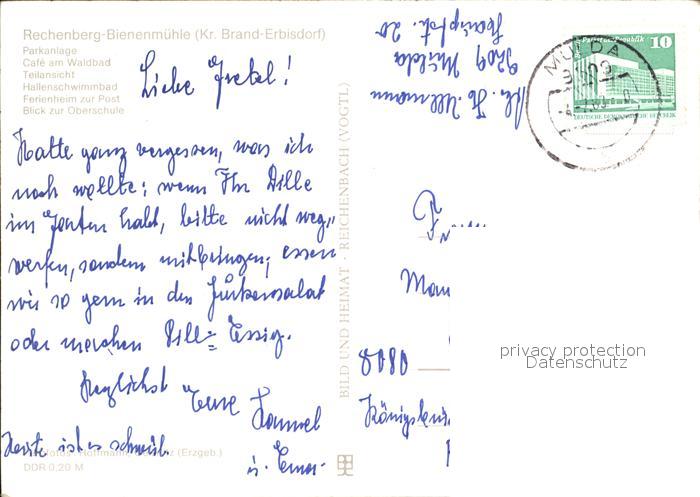 Rechenberg-Bienenmühle (Kr. Brand-Erbisdorf)
Parkanlage
Café am Waldbad
Teilansicht
Hallenschwimmbad
Ferienheim zur Post
Blick zur Oberschule
Liebe Gretel!
Hatte ganz vergessen, was ich
noch wollte: wenn Ihr Dille
im Garten habt, bitte nicht weg-
werfen, sondern mitbringen; essen
wir so gern in den Gurkensalat
oder machen Dill-Essig.
Herzlichst Eure
Heute ist es schwül.
u.
(Erzgeb.)
DDR 0,20 M
BILD UND HEIMAT · REICHENBACH (VOGTL)
Ullmann
9209 Mulda
Hauptstr. 20
MULDA
9209
10
DEUTSCHE DEMOKRATISCHE REPUBLIK
Fr
Man
Königsbrü
privacy protection
Datenschutz